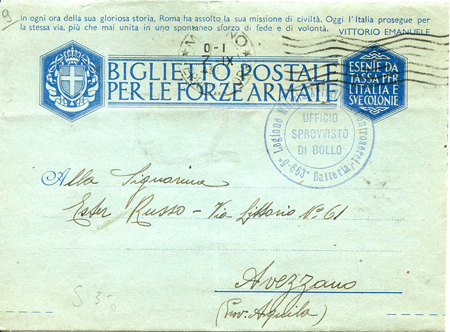 In ogni ora della sua gloriosa storia, Roma ha assolto la sua missione di civiltà. Oggi l'Italia prosegue per
la stessa via, più che mai unita in uno spontaneo sforzo di fede e di volontà. VITTORIO EMANUELE
BIGLIETTO POSTALE
PER LE FORZE ARMATE
ESENTE DA
TASSA PER
L'ITALIA E
SVE COLONIE
Legione
UFFICIO
SPROVVISTO
DI BOLLO
Batteria
Alla Signorina
Ester Russo - Via Littorio N° 61
Avezzano
(Prov. Aquila)
S 3-